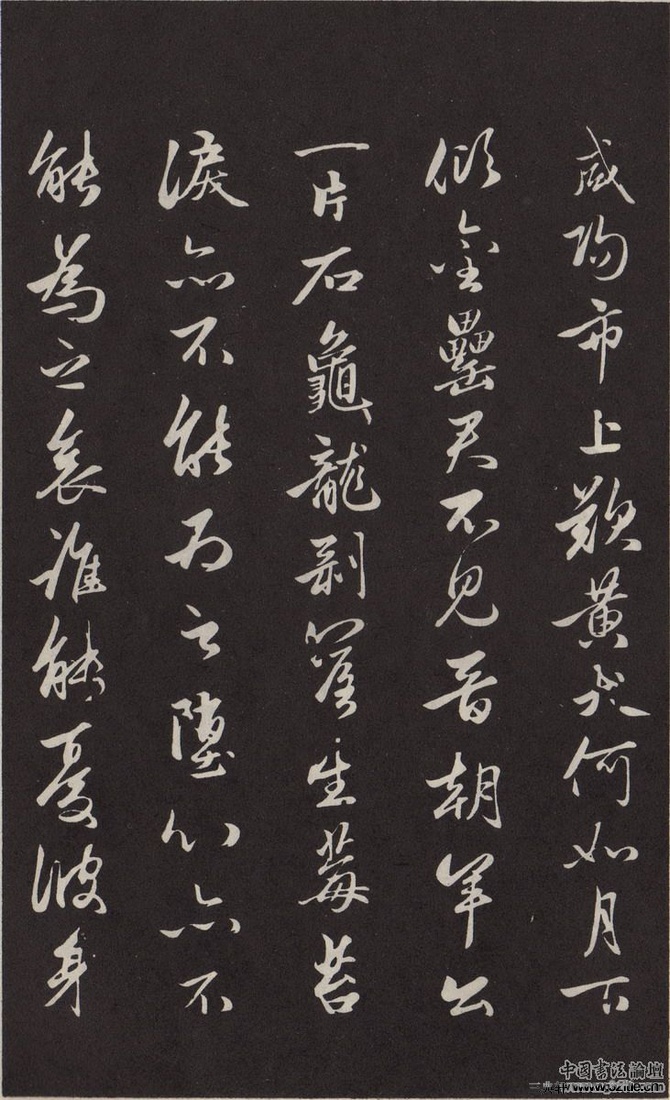 咸陽市上歎黃犬何如月下
傾金罍君不見晉朝羊公
一片石龜龍剝落生莓苔
淚亦不能為之墮心亦不
能為之哀誰能憂彼身
中国書法論壇